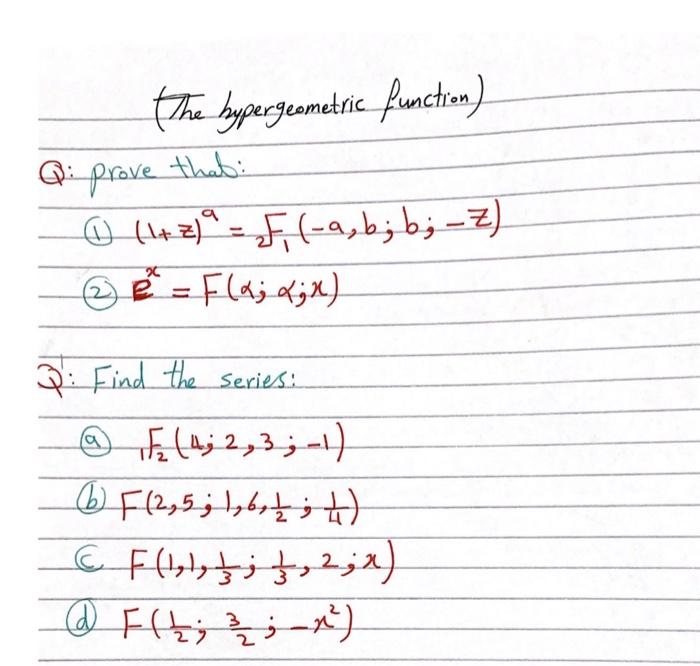 (The hypergeometric function)
Q: prove that:
① (1+z)^a = ₂F₁(-a, b; b; -z)
② e^x = F(α; α; x)
Q: Find the series:
ⓐ ₁F₂(4; 2, 3; -1)
ⓑ F(2, 5; 1, 6, 1/2; 1/4)
ⓒ F(1, 1, 1/3; 1/3, 2; x)
ⓓ F(1/2; 3/2; -x²)